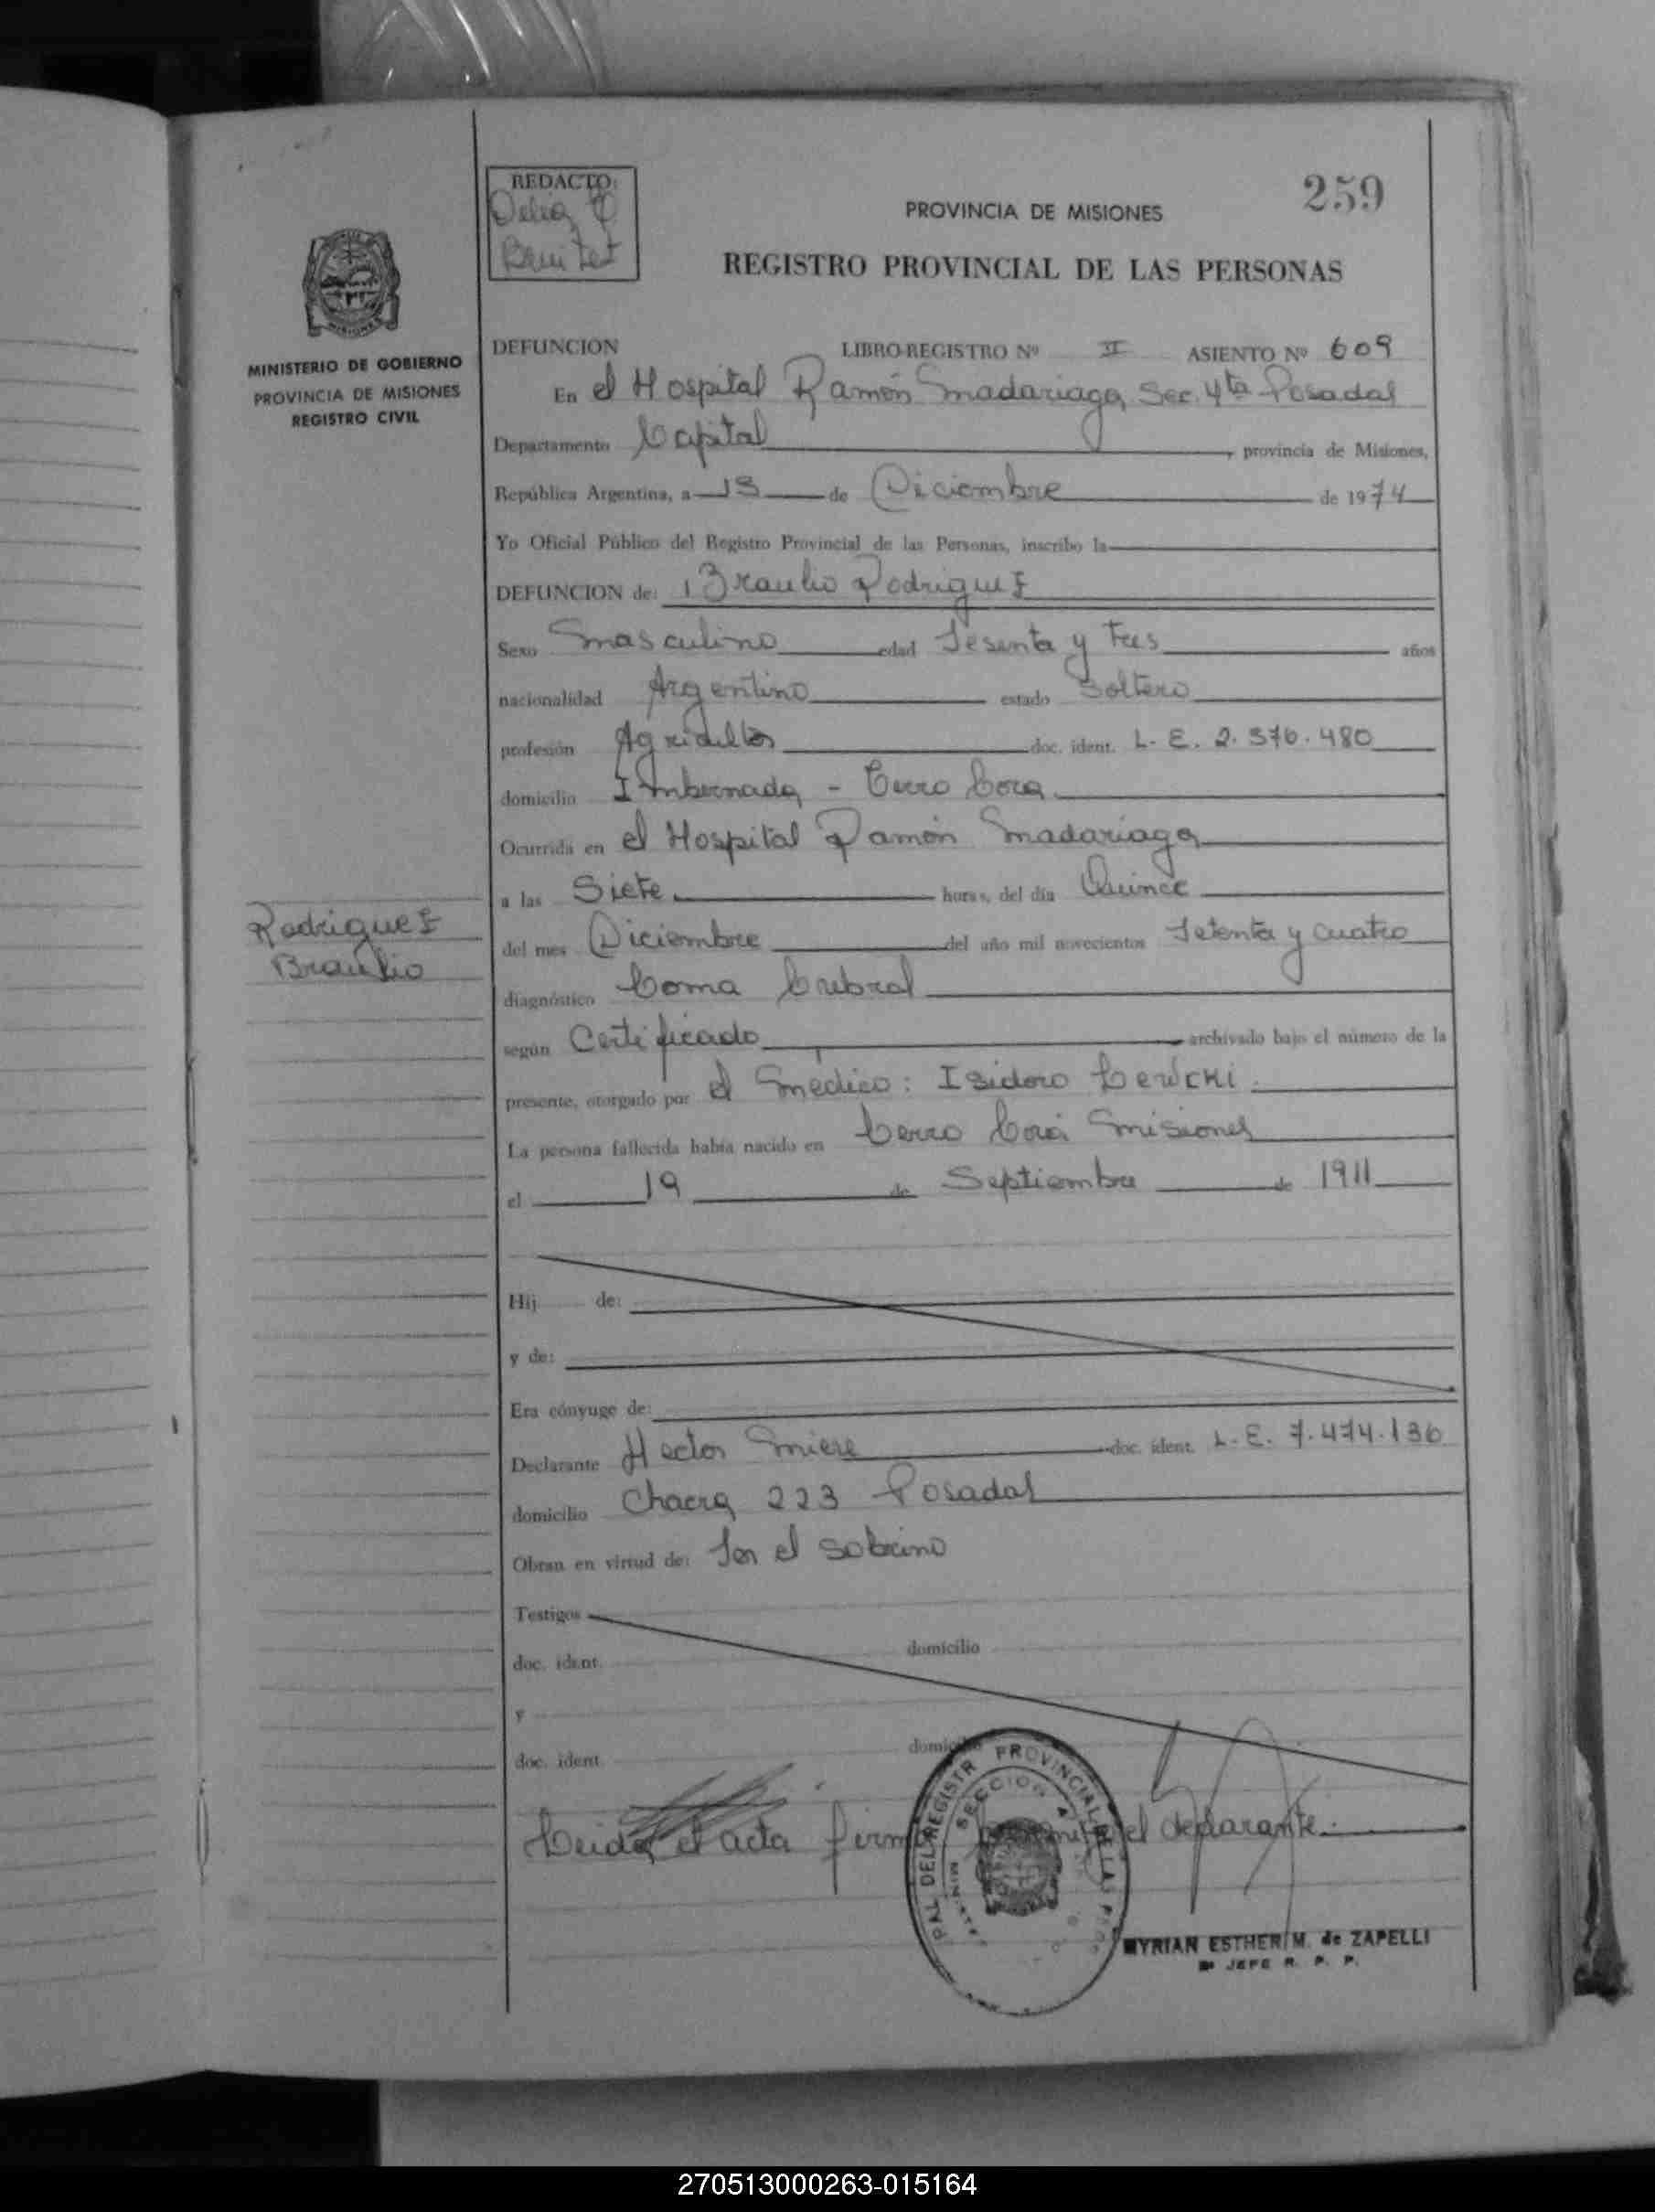 259
REDACTO:
Delia
Benitez
PROVINCIA DE MISIONES
REGISTRO PROVINCIAL DE LAS PERSONAS
MISIONES
MINISTERIO DE GOBIERNO
PROVINCIA DE MISIONES
REGISTRO CIVIL
DEFUNCION LIBRO-REGISTRO Nº II ASIENTO Nº 609
En el Hospital Ramón Madariaga, Sec. 4ta Posadas
Departamento Capital, provincia de Misiones,
República Argentina, a 15 de Diciembre de 1974
Yo Oficial Público del Registro Provincial de las Personas, inscribo la
DEFUNCION de: Braulio Rodriguez
Sexo Masculino edad Sesenta y tres años
nacionalidad Argentino estado Soltero
profesión doc. ident. L. E. 2.576.480
domicilio Imbernada - Cerro Cora
Ocurrida en el Hospital Ramón Madariaga
a las Siete horas, del día Quince
Rodriguez
Braulio
del mes Diciembre del año mil novecientos Setenta y cuatro
diagnóstico Coma
según Certificado archivado bajo el número de la
presente, otorgado por el Medico: Isidoro Lewcki
La persona fallecida había nacido en Cerro Corá Misiones
el 19 de Septiembre de 1911
Hij de:
y de:
Era cónyuge de:
Declarante Hector Miere doc. ident. L. E. 7.474.136
domicilio Chacra 223 Posadas
Obran en virtud de: Ser el sobrino
Testigos
doc. ident. domicilio
y
doc. ident.
Leida el acta el declarante.
PROVINCIAL
SECCION 4
MYRIAN ESTHER M. de ZAPELLI
JEFE R. P. P.
270513000263-015164